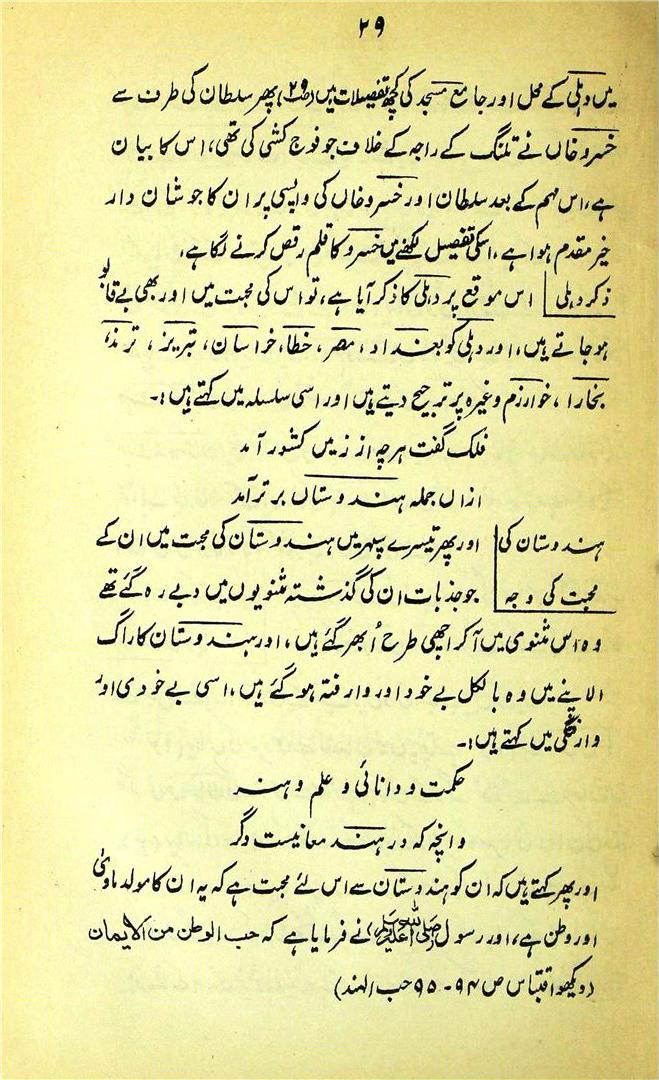 ۲۹
میں دہلی کے محل اور جامع مسجد کی کچھ تفصیلات ہیں (ص۷۹) پھر سلطان کی طرف سے
خسرو خاں نے تلنگ کے راجہ کے خلاف جو فوج کشی کی تھی، اس کا بیان
ہے، اس مہم کے بعد سلطان اور خسرو خاں کی واپسی پر ان کا جو شان دار
خیر مقدم ہوا ہے، اسکی تفصیل لکھنے میں خسرو کا قلم رقص کرنے لگا ہے،
ذکر دہلی اس موقع پر دہلی کا ذکر آیا ہے، تو اس کی محبت میں اور بھی بے قابو
ہو جاتے ہیں، اور دہلی کو بغداد، مصر، خطا، خراسان، تبریز، ترمذ،
بخارا، خوارزم وغیرہ پر ترجیح دیتے ہیں اور اسی سلسلہ میں کہتے ہیں:۔
فلک گفت ہر چہ از زمیں کشور آمد
ازاں جملہ ہندوستاں برتر آمد
ہندوستان کی اور پھر تیسرے سپہر میں ہندوستان کی محبت میں ان کے
محبت کی وجہ جو جذبات ان کی گذشتہ مثنویوں میں دبے رہ گئے تھے
وہ اس مثنوی میں آکر اچھی طرح اُبھر گئے ہیں، اور ہندوستان کا راگ
الاپنے میں وہ بالکل بے خود اور وارفتہ ہو گئے ہیں، اسی بے خودی اور
وارفتگی میں کہتے ہیں:۔
حکمت و دانائی و علم و ہنر
وانچہ کہ در ہند معانیست دگر
اور پھر کہتے ہیں کہ ان کو ہندوستان سے اس لئے محبت ہے کہ یہ ان کا مولد ماویٰ
اور وطن ہے، اور رسول (صلی اللہ علیہ وسلم) نے فرمایا ہے کہ حب الوطن من الایمان
(دیکھو اقتباس ص ۹۴-۹۵ حب الہند)